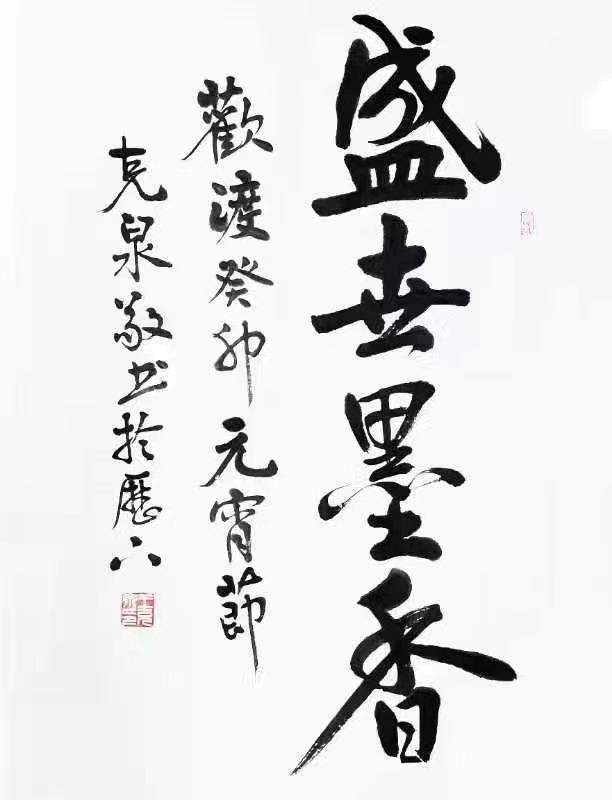 盛世墨香
歡渡癸卯元宵節
克泉敬书於歷下